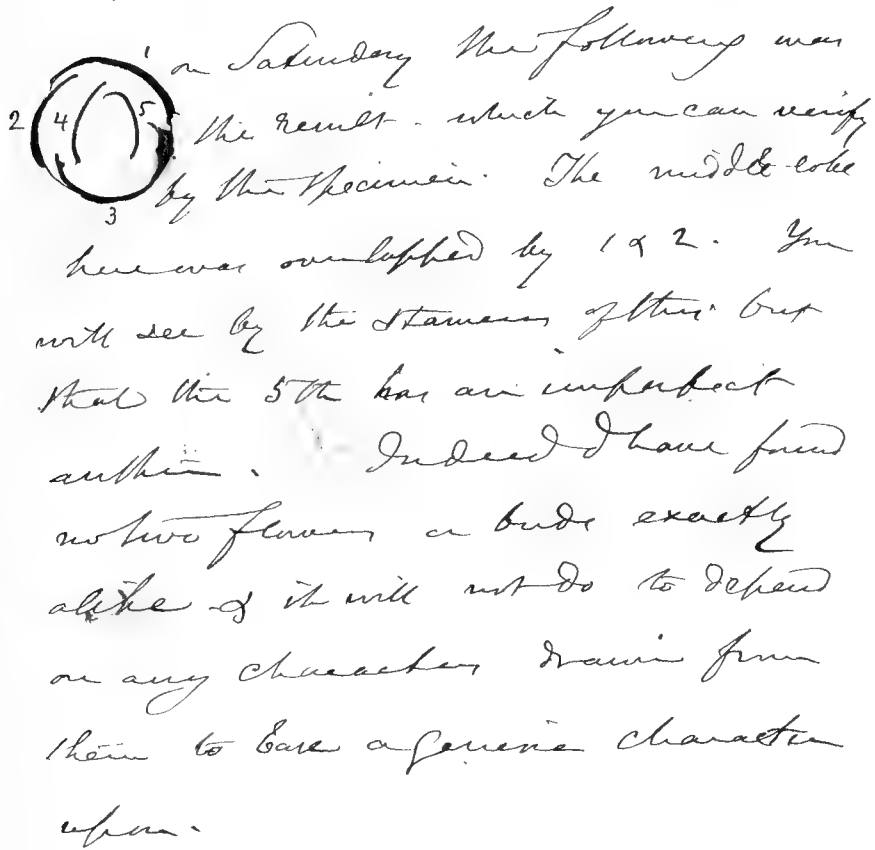 1
on Saturday the following was
2 4 5
the result - which you can verify
by the specimen. The middle lobe
3
here was overlapped by 1 & 2. You
will see by the stamens of this bud
that the 5th has an imperfect
anther. Indeed I have found
no two flowers or buds exactly
alike & it will not do to depend
on any characters drawn from
them to base a generic character
upon.